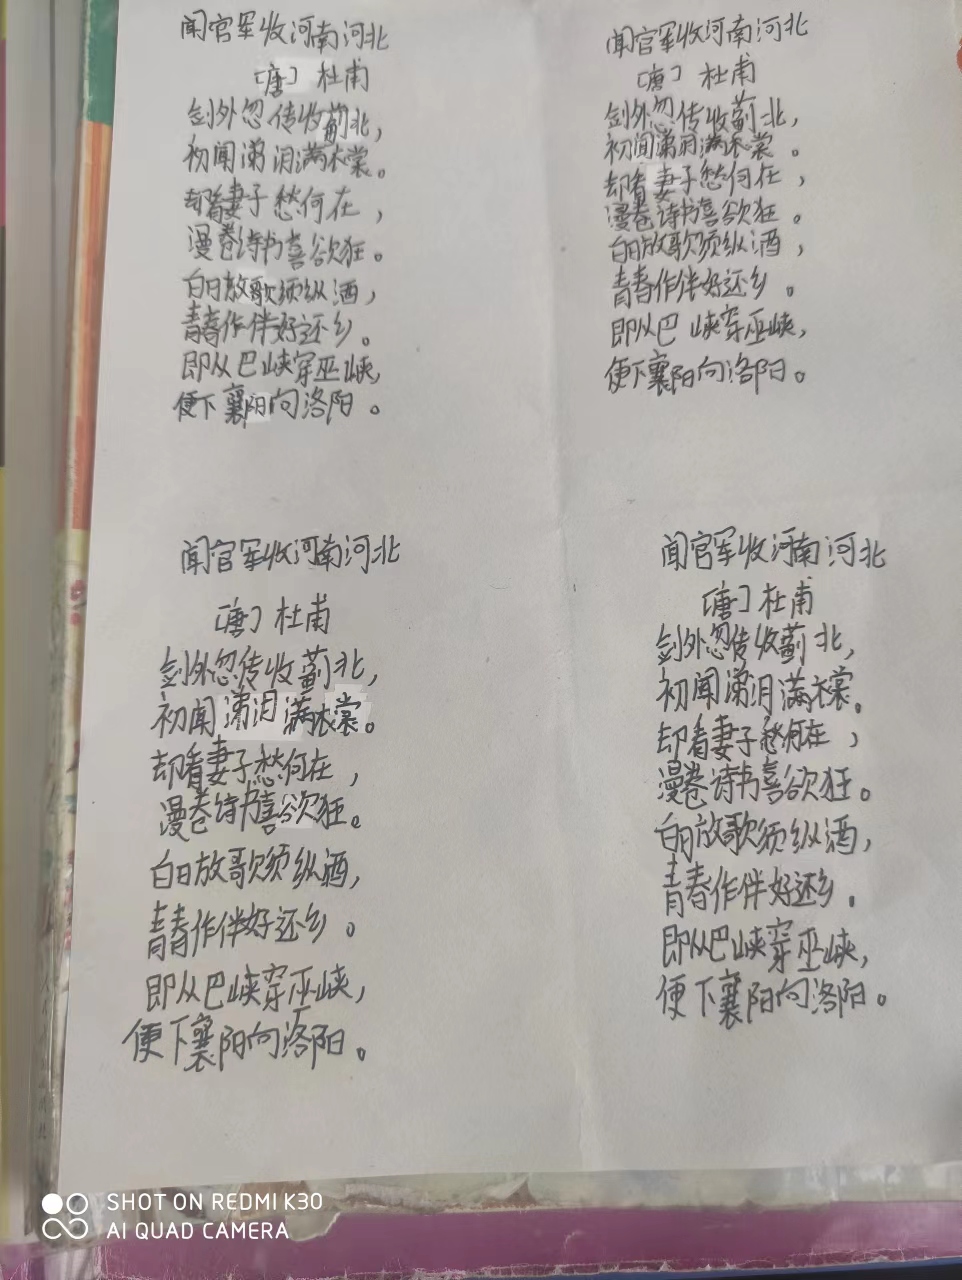 闻官军收河南河北
[唐] 杜甫
剑外忽传收蓟北，
初闻涕泪满衣裳。
却看妻子愁何在，
漫卷诗书喜欲狂。
白日放歌须纵酒，
青春作伴好还乡。
即从巴峡穿巫峡，
便下襄阳向洛阳。
闻官军收河南河北
[唐] 杜甫
剑外忽传收蓟北，
初闻涕泪满衣裳。
却看妻子愁何在，
漫卷诗书喜欲狂。
白日放歌须纵酒，
青春作伴好还乡。
即从巴峡穿巫峡，
便下襄阳向洛阳。
闻官军收河南河北
[唐] 杜甫
剑外忽传收蓟北，
初闻涕泪满衣裳。
却看妻子愁何在，
漫卷诗书喜欲狂。
白日放歌须纵酒，
青春作伴好还乡。
即从巴峡穿巫峡，
便下襄阳向洛阳。
闻官军收河南河北
[唐] 杜甫
剑外忽传收蓟北，
初闻涕泪满衣裳。
却看妻子愁何在，
漫卷诗书喜欲狂。
白日放歌须纵酒，
青春作伴好还乡。
即从巴峡穿巫峡，
便下襄阳向洛阳。
SHOT ON REDMI K30
AI QUAD CAMERA